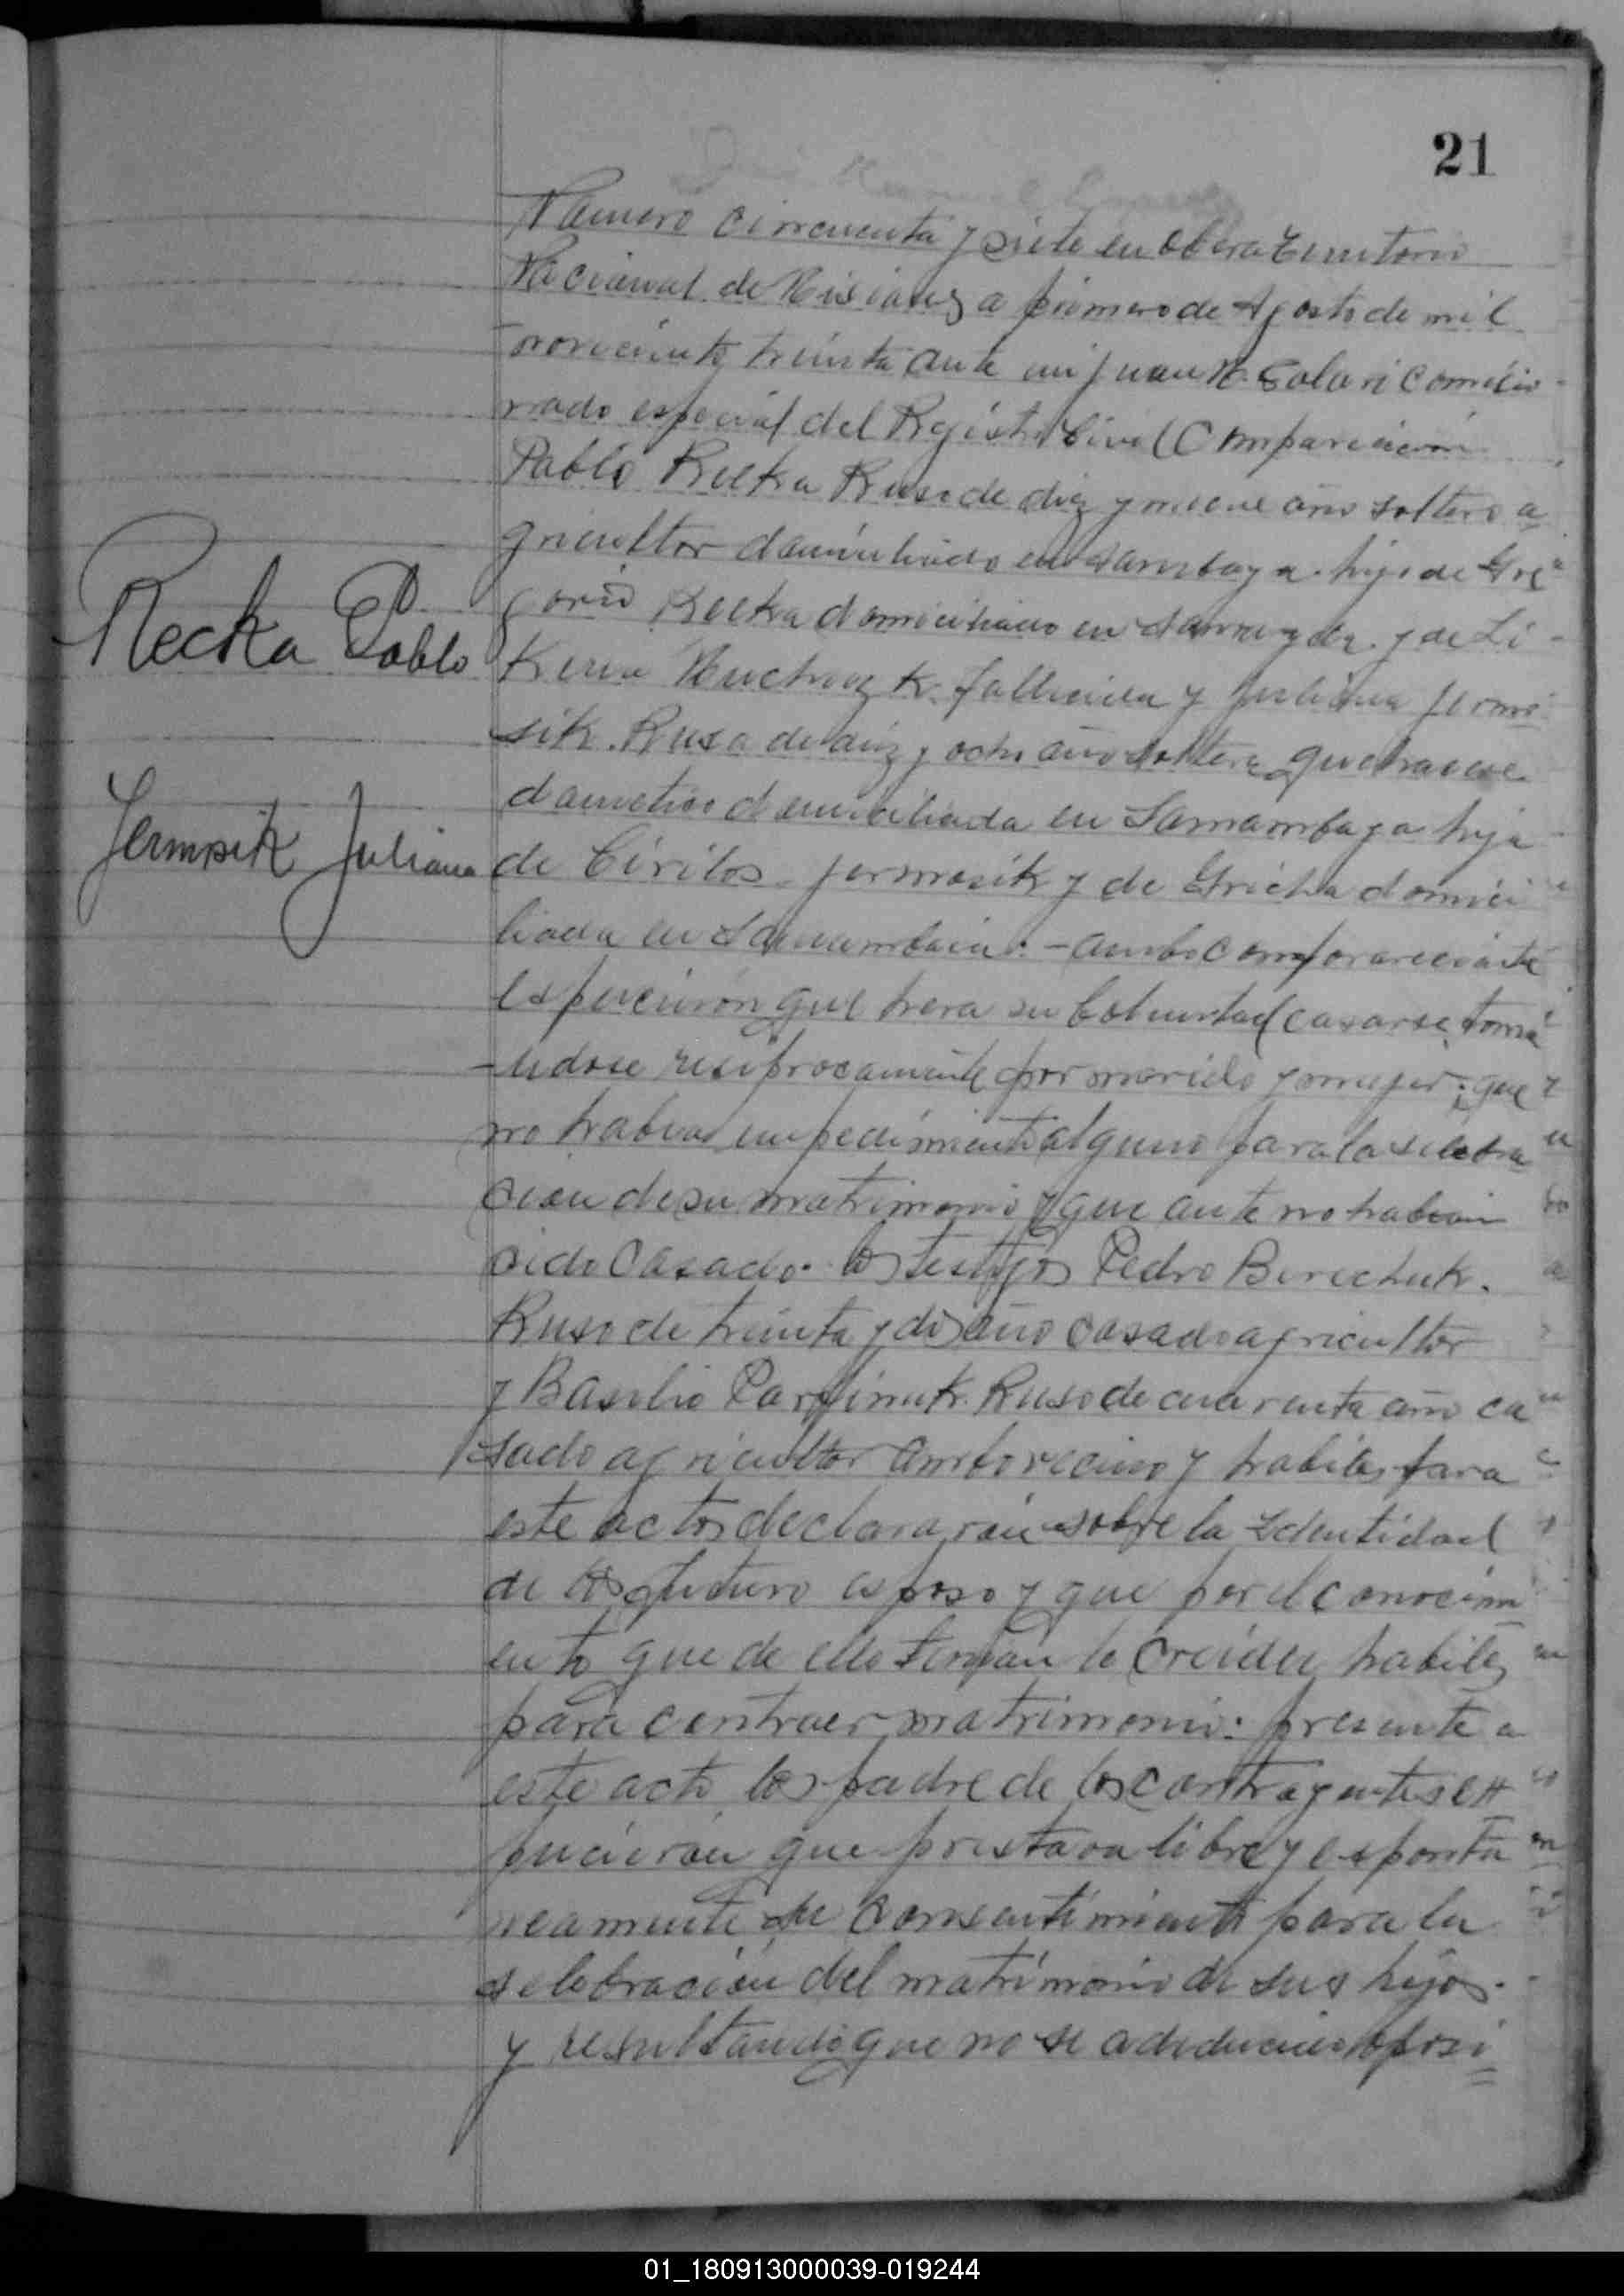 21
Numero cincuenta y siete en Obera Territorio
Nacional de Misiones a primero de Agosto de mil
novecientos treinta ante mi Juan N. Solari Comisio-
nado especial del Registro Civil Comparecieron
Pablo Recka Ruso de diez y nueve año soltero a
gricultor domiciliado en Samambaya hijo de Gre
gorio Recka domiciliado en y de Li-
kera fallecida y Juliana Jermo
sik. Rusa de diez y ocho año soltera quehacere
domestico domiciliada en Samambaya hija
de Cirilos Jermosik y de Gricha domici
liada en Samambaia: - ambo comparareciente
espucieron que hera su boluntad casarse toma
-ndose resiprocamente por marido y mujer; que
no habia impedimento alguno para la selebra
cion de su matrimonio y que ante no habian
sido Casado. los testigos Pedro Borechuk.
Ruso de treinta y dos año casado agricultor
y Basilio Parfinuk. Ruso de cuarenta año ca
sado agricultor ambo vecino y habiles para
este actos declararon sobre la Identidad
de los futuro esposo y que por el conocimi
ento que de ello tenian lo creiden habiles
para contraer matrimonio: presente a
este acto los padre de los contrayentes ex
pucieron que prestavan libre y esponta
neamente su consentimiento para la
selebracion del matrimonio de sus hijos.
y resultando que no se a deducido oposi
Recka Pablo
Jermosik Juliana
01_180913000039-019244